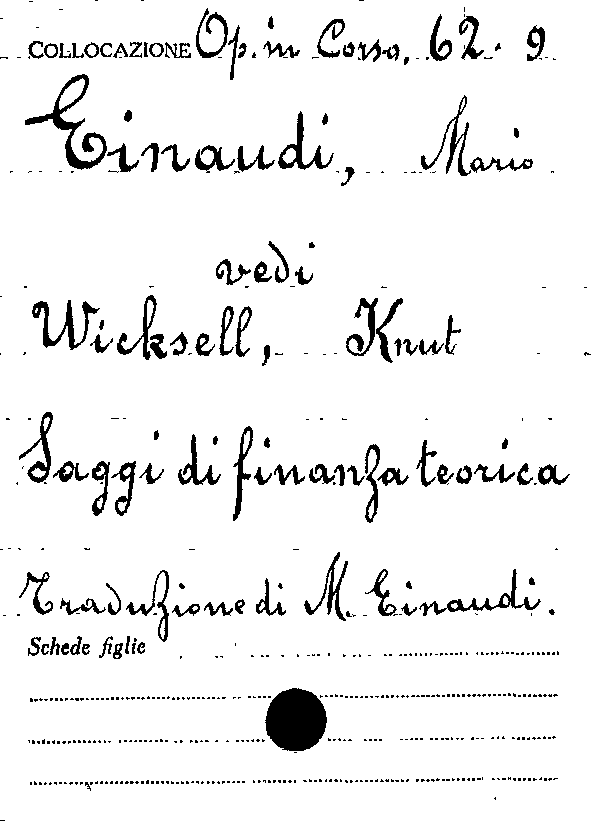 COLLOCAZIONE Op. in Corso. 62. 9
Einaudi, Mario
vedi
Wicksell, Knut
Saggi di finanza teorica
Traduzione di M. Einaudi.
Schede figlie